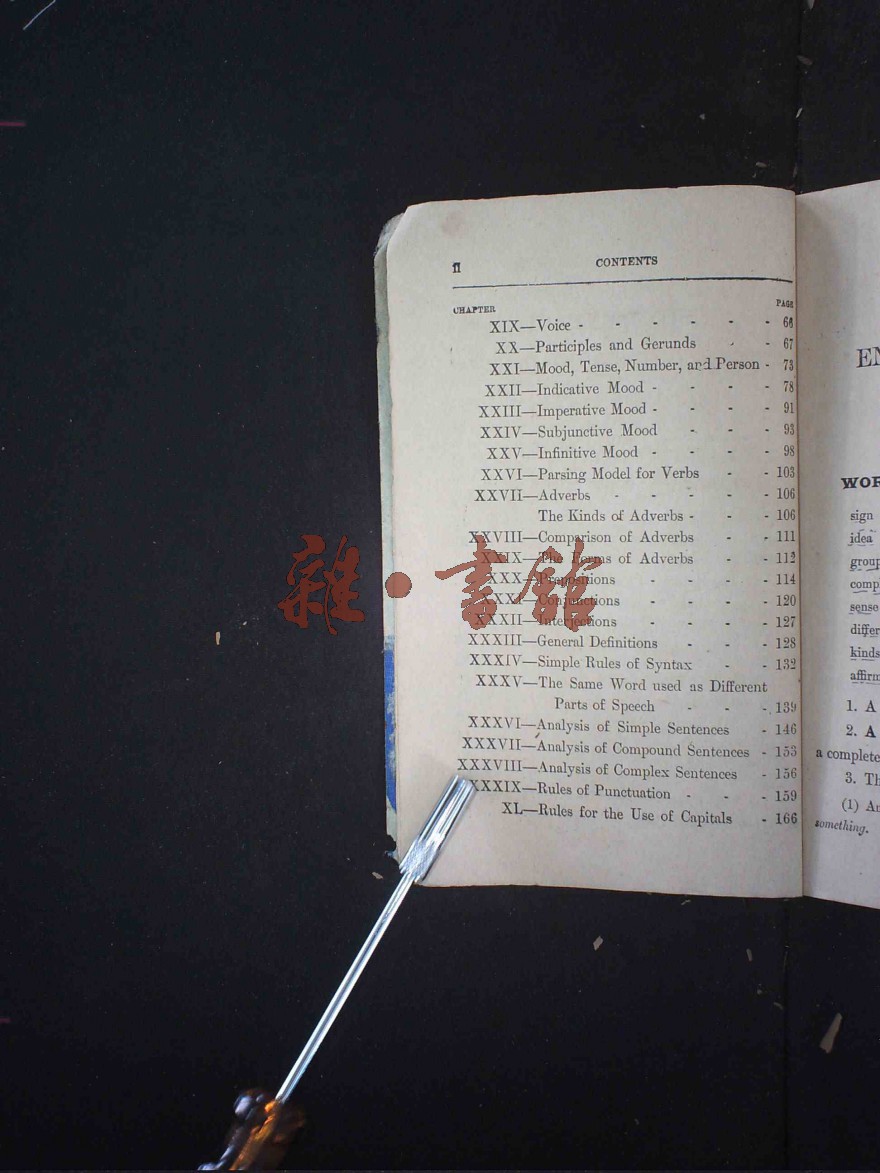 ii
CONTENTS
CHAPTER PAGE
XIX—Voice - - - - - - 66
XX—Participles and Gerunds - - 67
XXI—Mood, Tense, Number, and Person - 73
XXII—Indicative Mood - - - - 78
XXIII—Imperative Mood - - - - 91
XXIV—Subjunctive Mood - - - 93
XXV—Infinitive Mood - - - - 98
XXVI—Parsing Model for Verbs - - 103
XXVII—Adverbs - - - - - 106
The Kinds of Adverbs - - - 106
XXVIII—Comparison of Adverbs - - 111
XXIX—The Forms of Adverbs - - 112
XXX—Prepositions - - - - 114
XXXI—Conjunctions - - - - 120
XXXII—Interjections - - - - 127
XXXIII—General Definitions - - - 128
XXXIV—Simple Rules of Syntax - - 132
XXXV—The Same Word used as Different
Parts of Speech - - - 139
XXXVI—Analysis of Simple Sentences - 146
XXXVII—Analysis of Compound Sentences - 153
XXXVIII—Analysis of Complex Sentences - 156
XXXIX—Rules of Punctuation - - - 159
XL—Rules for the Use of Capitals - 166
雜·書館
EN
WOR
sign
idea
group
comp
sense
differ
kinds
affirm
1. A
2. A
a complete
3. Th
(1) An
something.